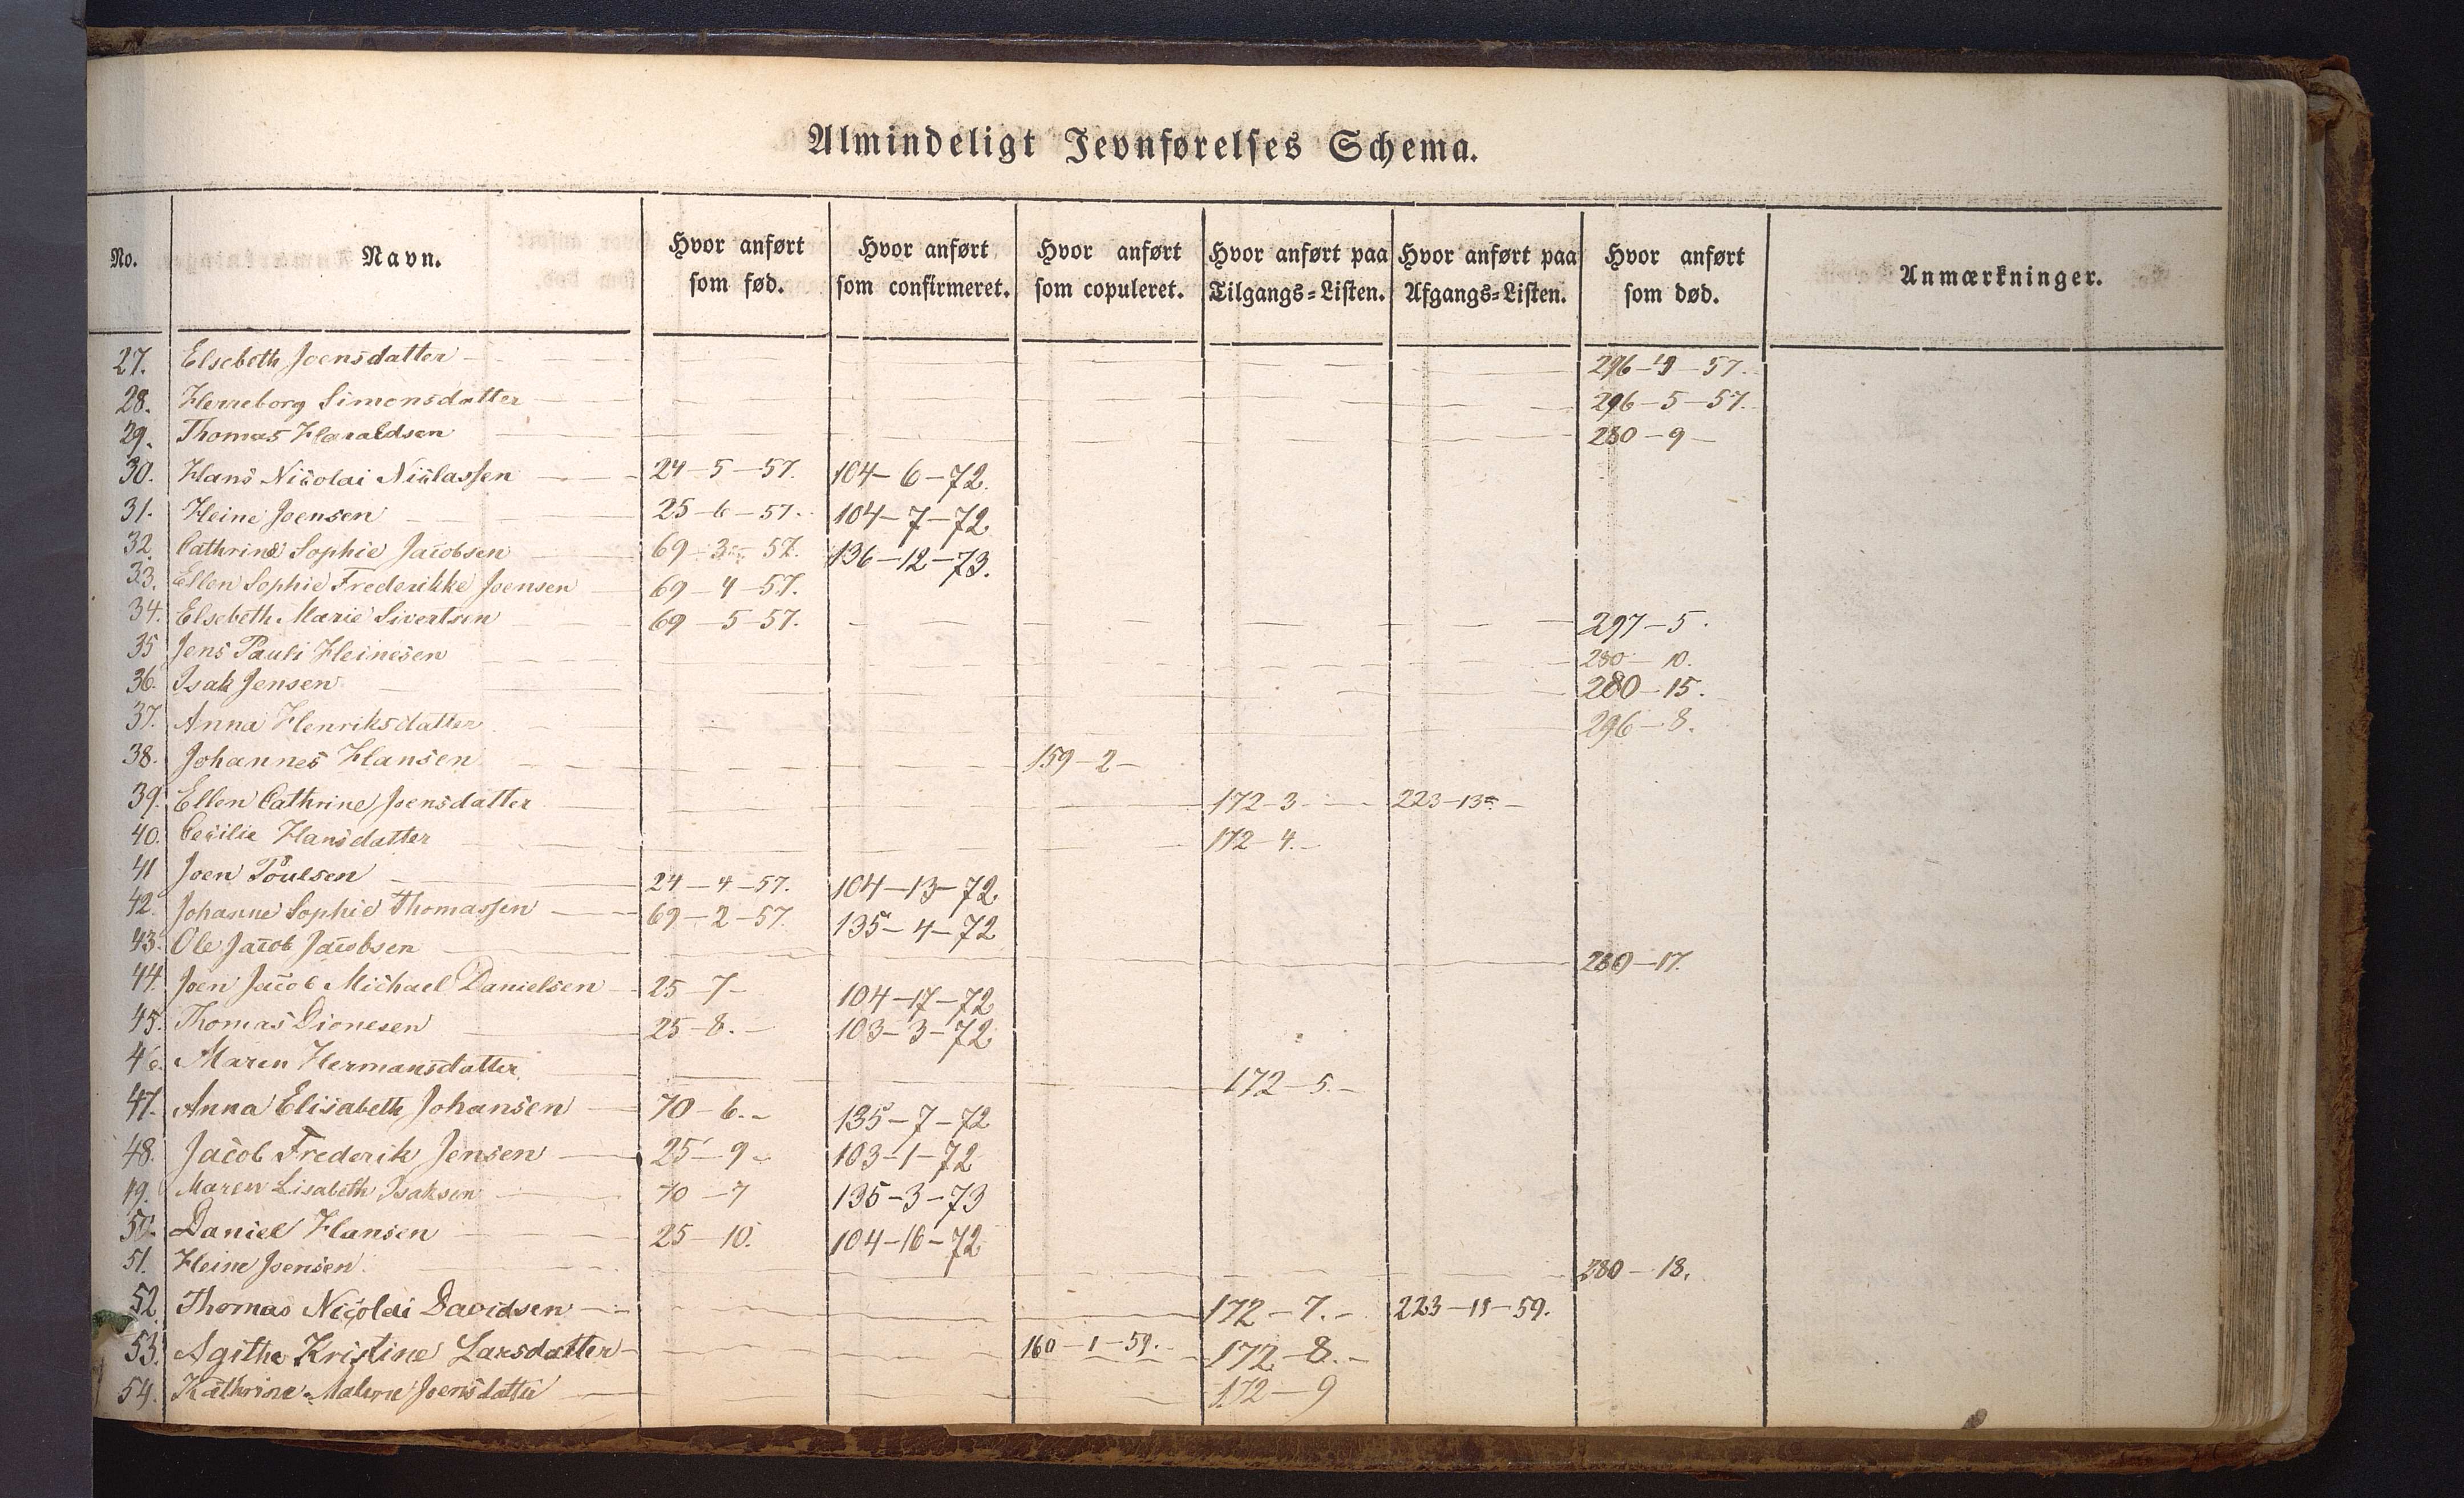 Almindeligt Jevnførelses Schema.
No. Navn. Hvor anført som fød. Hvor anført som confirmeret. Hvor anført som copuleret. Hvor anført paa Tilgangs-Listen. Hvor anført paa Afgangs-Listen. Hvor anført som død. Anmærkninger.
27. Elsebeth Joensdatter 296 - 19 - 57.
28. Herreborg Simonsdatter 296 - 5 - 57.
29. Thomas Haraldsen 280 - 9 -
30. Hans Nicolai Niclassen 24 - 5 - 57. 104 - 6 - 72.
31. Heine Joensen 25 - 6 - 57. 104 - 7 - 72
32. Cathrine Sophie Jacobsen 69 - 3 - 57. 136 - 12 - 73.
33. Ellen Sophie Frederikke Joensen 69 - 4 - 57.
34. Elsebeth Marie Sivertsen 69 - 5 - 57. 297 - 5.
35 Jens Pauli Heinesen 280 - 10.
36. Isak Jensen 280 - 15.
37. Anna Henriksdatter 296 - 8.
38. Johannes Hansen 159 - 2 -
39. Ellen Cathrine Joensdatter 172 - 3 - 223 - 13 -
40. Cecilie Hansdatter 172 - 4. -
41 Joen Poulsen 24 - 4 - 57. 104 - 13 - 72
42. Johanne Sophie Thomassen 69 - 2 - 57. 135 - 4 - 72
43. Ole Jacob Jacobsen 280 - 17.
44. Joen Jacob Michael Danielsen 25 - 7 - 104 - 17 - 72
45. Thomas Dionesen 25 - 8. - 103 - 3 - 72
46. Maren Hermansdatter 172 - 5. -
47. Anna Elisabeth Johansen 70 - 6. - 135 - 7 - 72
48. Jacob Frederik Jensen 25 - 9 - 103 - 1 - 72
49. Maren Lisabeth Isaksen 70 - 7 135 - 3 - 73
50. Daniel Hansen 25 - 10. 104 - 16 - 72
51. Heine Joensen 280 - 18.
52. Thomas Nicolai Davidsen 172 - 7. - 223 - 11 - 59.
53. Agathe Kristine Larsdatter 160 - 1 - 59. 172 - 8. -
54. Kathrine Malene Joensdatter 172 - 9